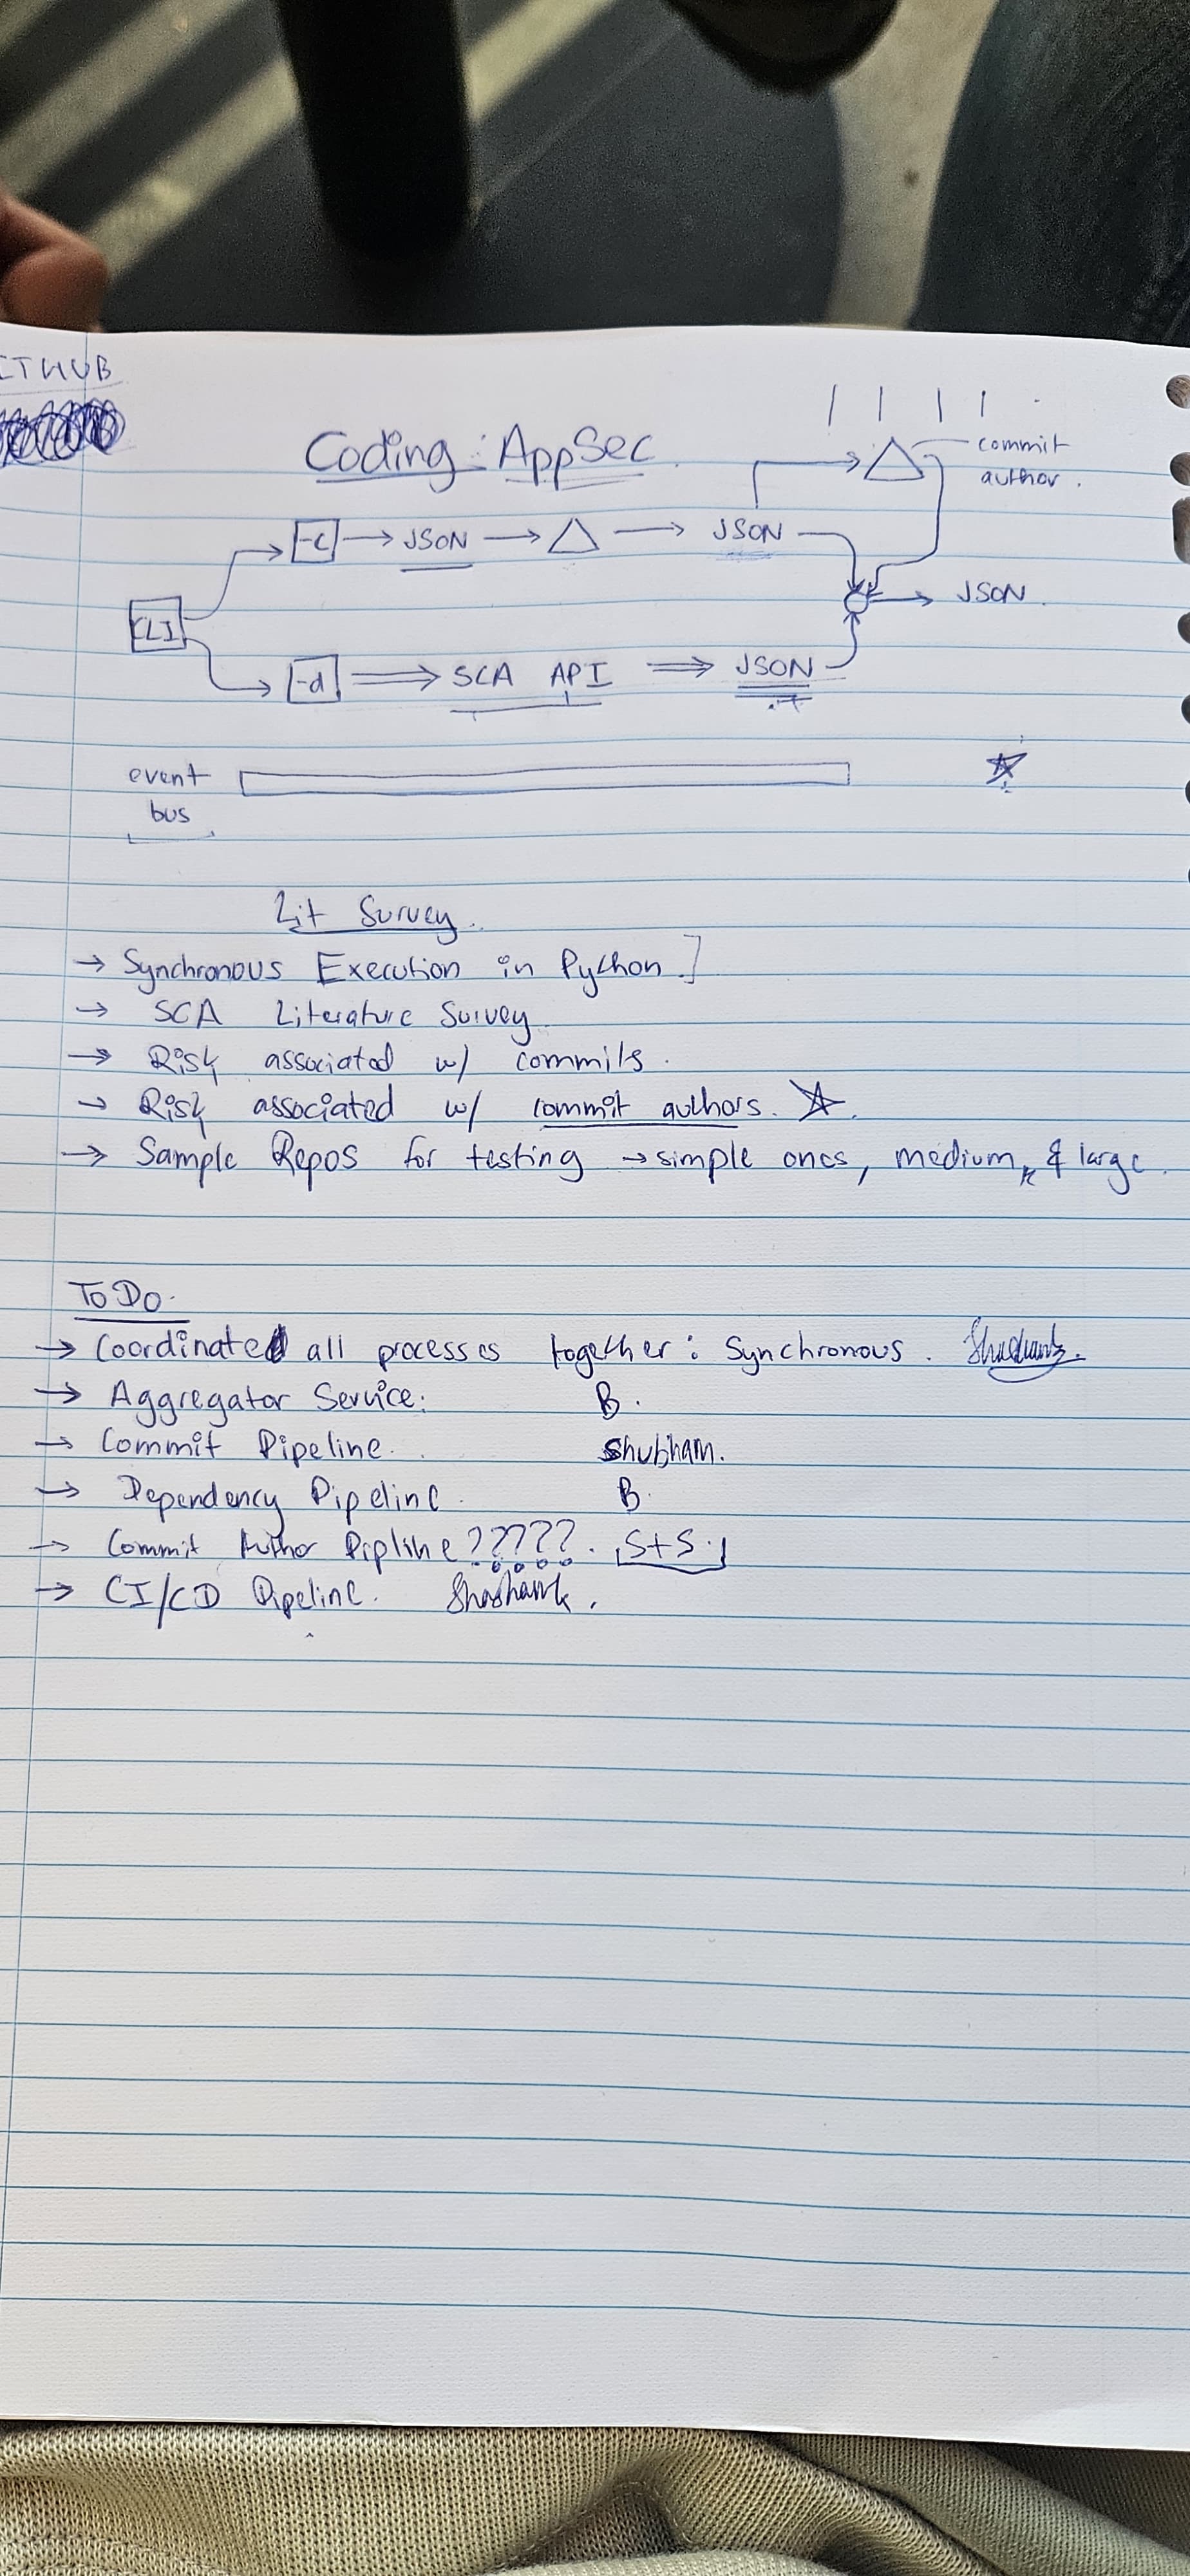 ITHUB
Coding: AppSec.
commit
author.
-c → JSON → △ → JSON
CLI
JSON.
-d ⇒ SCA API ⇒ JSON
event
bus
Lit Survey.
→ Synchronous Execution in Python]
→ SCA Literature Survey
→ Risk associated w/ commits.
→ Risk associated w/ commit authors. ☆.
→ Sample Repos for testing → simple ones, medium, & large.
To Do.
→ Coordinate all processes together: Synchronous. Shashank.
→ Aggregator Service: B.
→ Commit Pipeline. Shubham.
→ Dependency Pipeline. B.
→ Commit Author Pipline?????. S+S.
→ CI/CD Pipeline. Shashank.